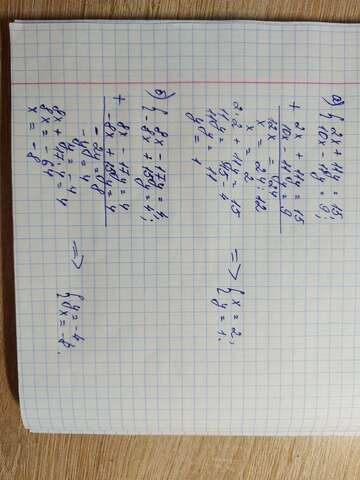 а) { 2x + 11y = 15;
{ 10x - 11y = 9;
+ 2x + 11y = 15
10x - 11y = 9
12x = 24
x = 24:12
x = 2
2·2 + 11y = 15
11y = 15 - 4
11y = 11
y = 1
=> { x = 2,
y = 1.
б) { 8x - 17y = 4;
{ -8x + 15y = 4;
+ 8x - 17y = 4
-8x + 15y = 4
-2y = 8
-y = 4
y = -4
8x + 17·4 = 4
8x = -64
x = -8
=> { y = -4
x = -8.